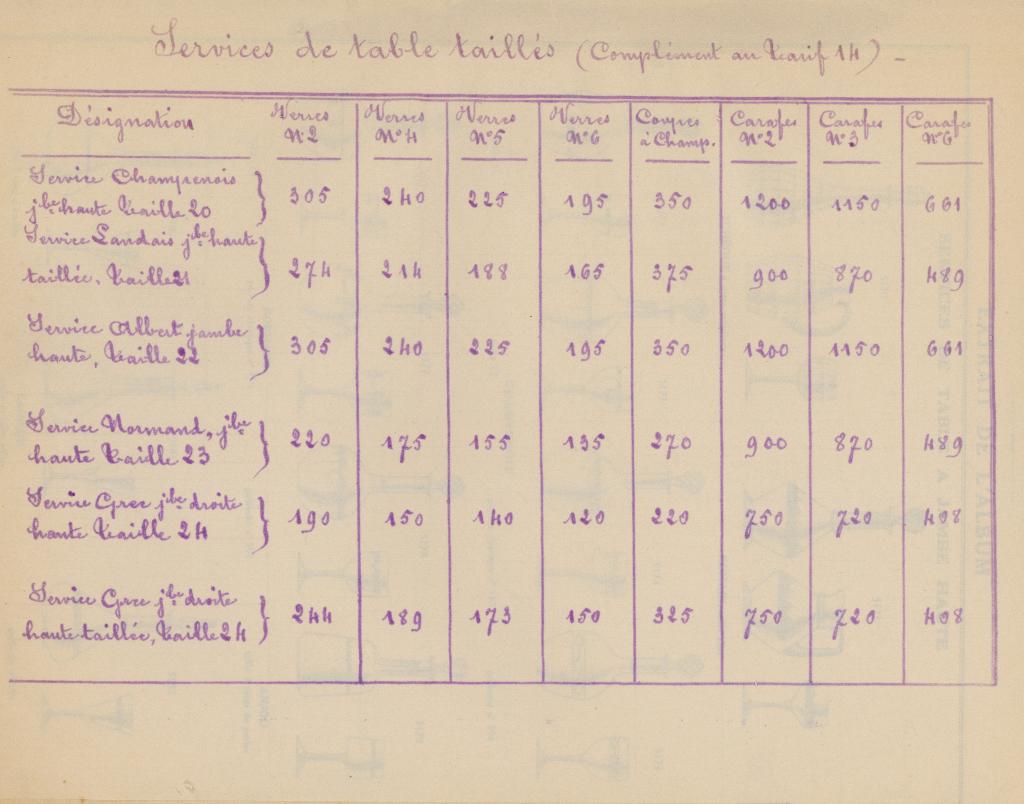 Services de table taillés (Complément au Tarif 14) -
Désignation Verres N°2 Verres N°4 Verres N°5 Verres N°6 Coupes à Champ. Carafes N°2 Carafes N°3 Carafes N°6
Service Champenois
jbe haute Taille 20 } 305 240 225 195 350 1200 1150 661
Service Landais jbe haute
taillée, Taille 21 } 274 214 188 165 375 900 870 489
Service Albert jambe
haute, Taille 22 } 305 240 225 195 350 1200 1150 661
Service Normand, jbe
haute Taille 23 } 220 175 155 135 270 900 870 489
Service Grec jbe droite
haute Taille 24 } 190 150 140 120 220 750 720 408
Service Grec jbe droite
haute taillée, Taille 24 } 244 189 173 150 325 750 720 408